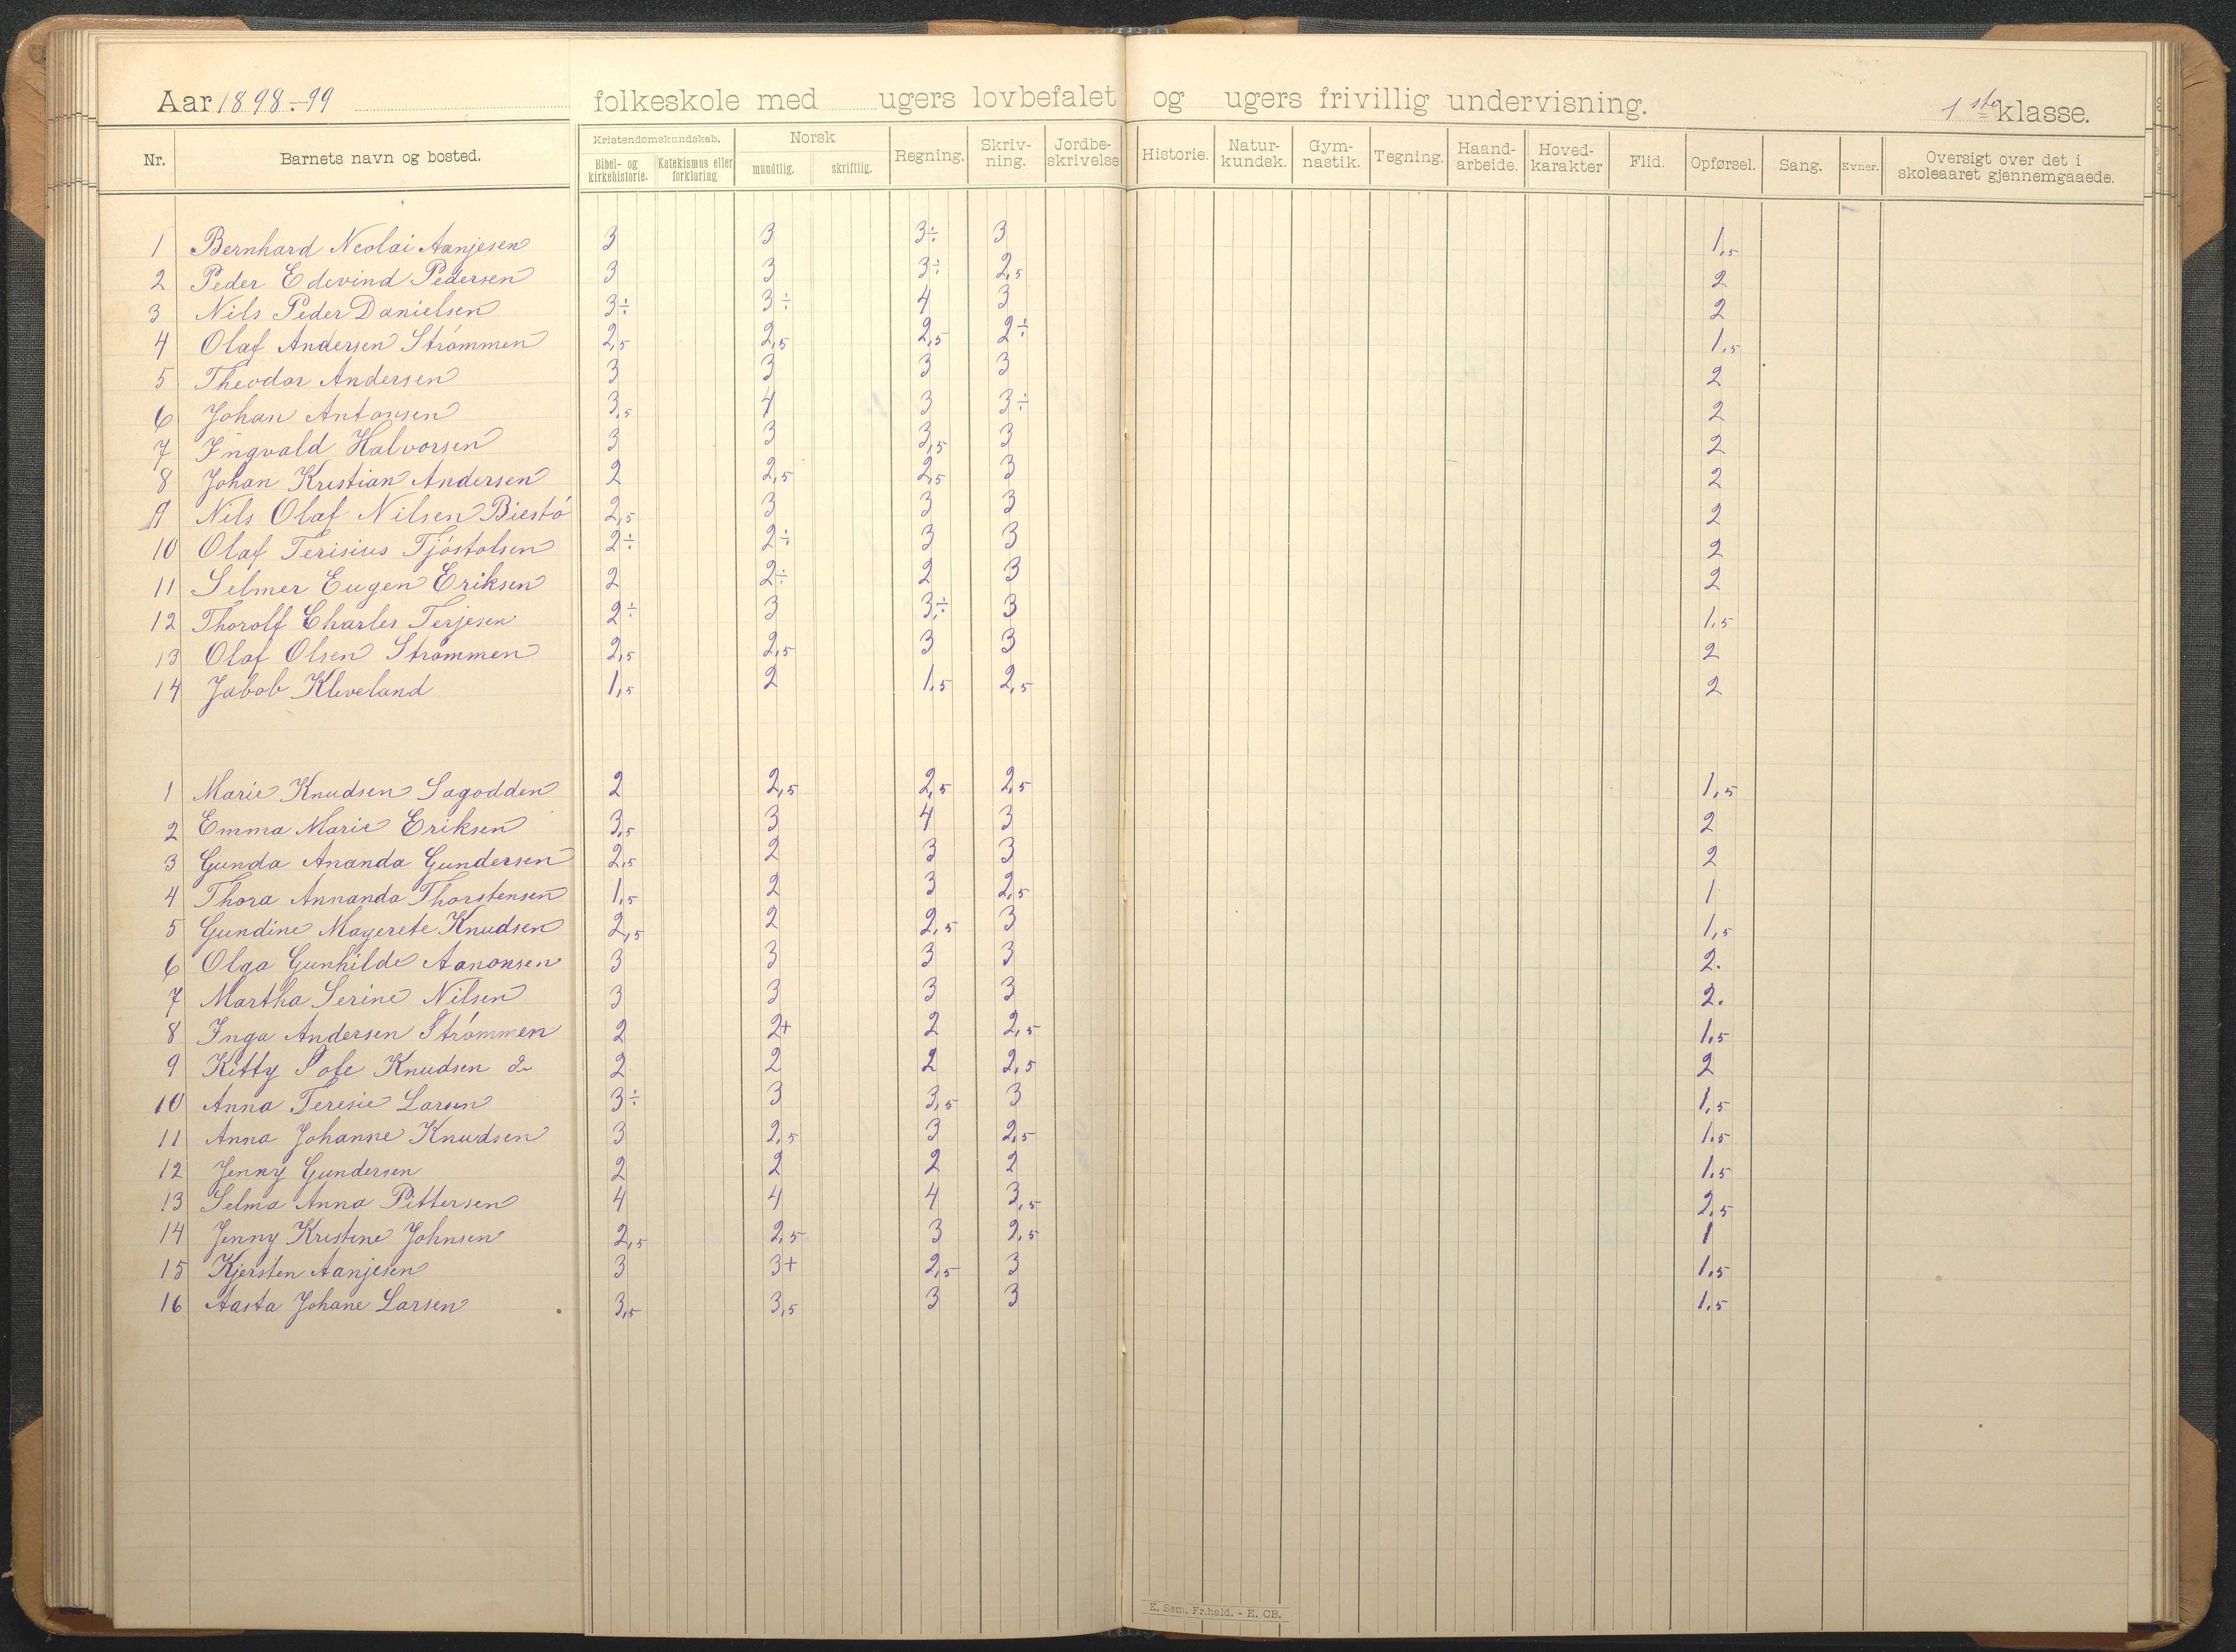 Aar 1898-99 folkeskole med ugers lovbefalet og ugers frivillig undervisning. 1ste klasse.
Nr. Barnets navn og bosted. Kristendomskundskab. Bibel- og kirkehistorie. Katekismus eller forklaring Norsk mundtlig. skriftlig. Regning. Skriv-ning. Jordbe-skrivelse Historie. Natur-kundsk. Gym-nastik. Tegning. Haand-arbeide. Hoved-karakter Flid. Opførsel. Sang. Evner. Oversigt over det i skoleaaret gjennemgaaede.
1 Bernhard Ncolai Aanjesen 3 3 3÷ 3 1,5
2 Peder Edevind Pedersen 3 3 3÷ 2,5 2
3 Nils Peder Danielsen 3÷ 3÷ 4 3 2
4 Olaf Andersen Strømmen 2,5 2,5 2,5 2÷ 1,5
5 Theodor Andersen 3 3 3 3 2
6 Johan Antonsen 3,5 4 3 3÷ 2
7 Ingvald Halvorsen 3 3 3,5 3 2
8 Johan Kristian Andersen 2 2,5 2,5 3 2
9 Nils Olaf Nilsen Biestø 2,5 3 3 3 2
10 Olaf Terisius Tjøstolsen 2÷ 2÷ 3 3 2
11 Selmer Eugen Eriksen 2 2÷ 2 3 2
12 Thorolf Charles Terjesen 2÷ 3 3,÷ 3 1,5
13 Olaf Olsen Strømmen 2,5 2,5 3 3 2
14 Jabob Kleveland 1,5 2 1,5 2,5 2
1 Marie Knudsen Sagodden 2 2,5 2,5 2,5 1,5
2 Emma Marie Eriksen 3,5 3 4 3 2
3 Gunda Ananda Gundersen 2,5 2 3 3 2
4 Thora Annanda Thorstensen 1,5 2 3 2,5 1
5 Gundine Magerete Knudsen 2,5 2 2,5 3 1,5
6 Olga Gunhilde Aanonsen 3 3 3 3 2.
7 Martha Serine Nilsen 3 3 3 3 2.
8 Inga Andersen Strømmen 2 2+ 2 2,5 1,5
9 Kitty Sofe Knudsen do 2 2 2 2,5 2
10 Anna Teresie Larsen 3÷ 3 3,5 3 1,5
11 Anna Johanne Knudsen 3 2,5 3 2,5 1,5
12 Jenny Gundersen 2 2 2 2 1,5
13 Selma Anna Pittersen 4 4 4 3,5 2,5
14 Jenny Kristine Johnsen 2,5 2,5 3 2,5 1
15 Kjersten Aanjesen 3 3+ 2,5 3 1,5
16 Aasta Johane Larsen 3,5 3,5 3 3 1,5
E. Sem, Fr.hald. - E. CB.